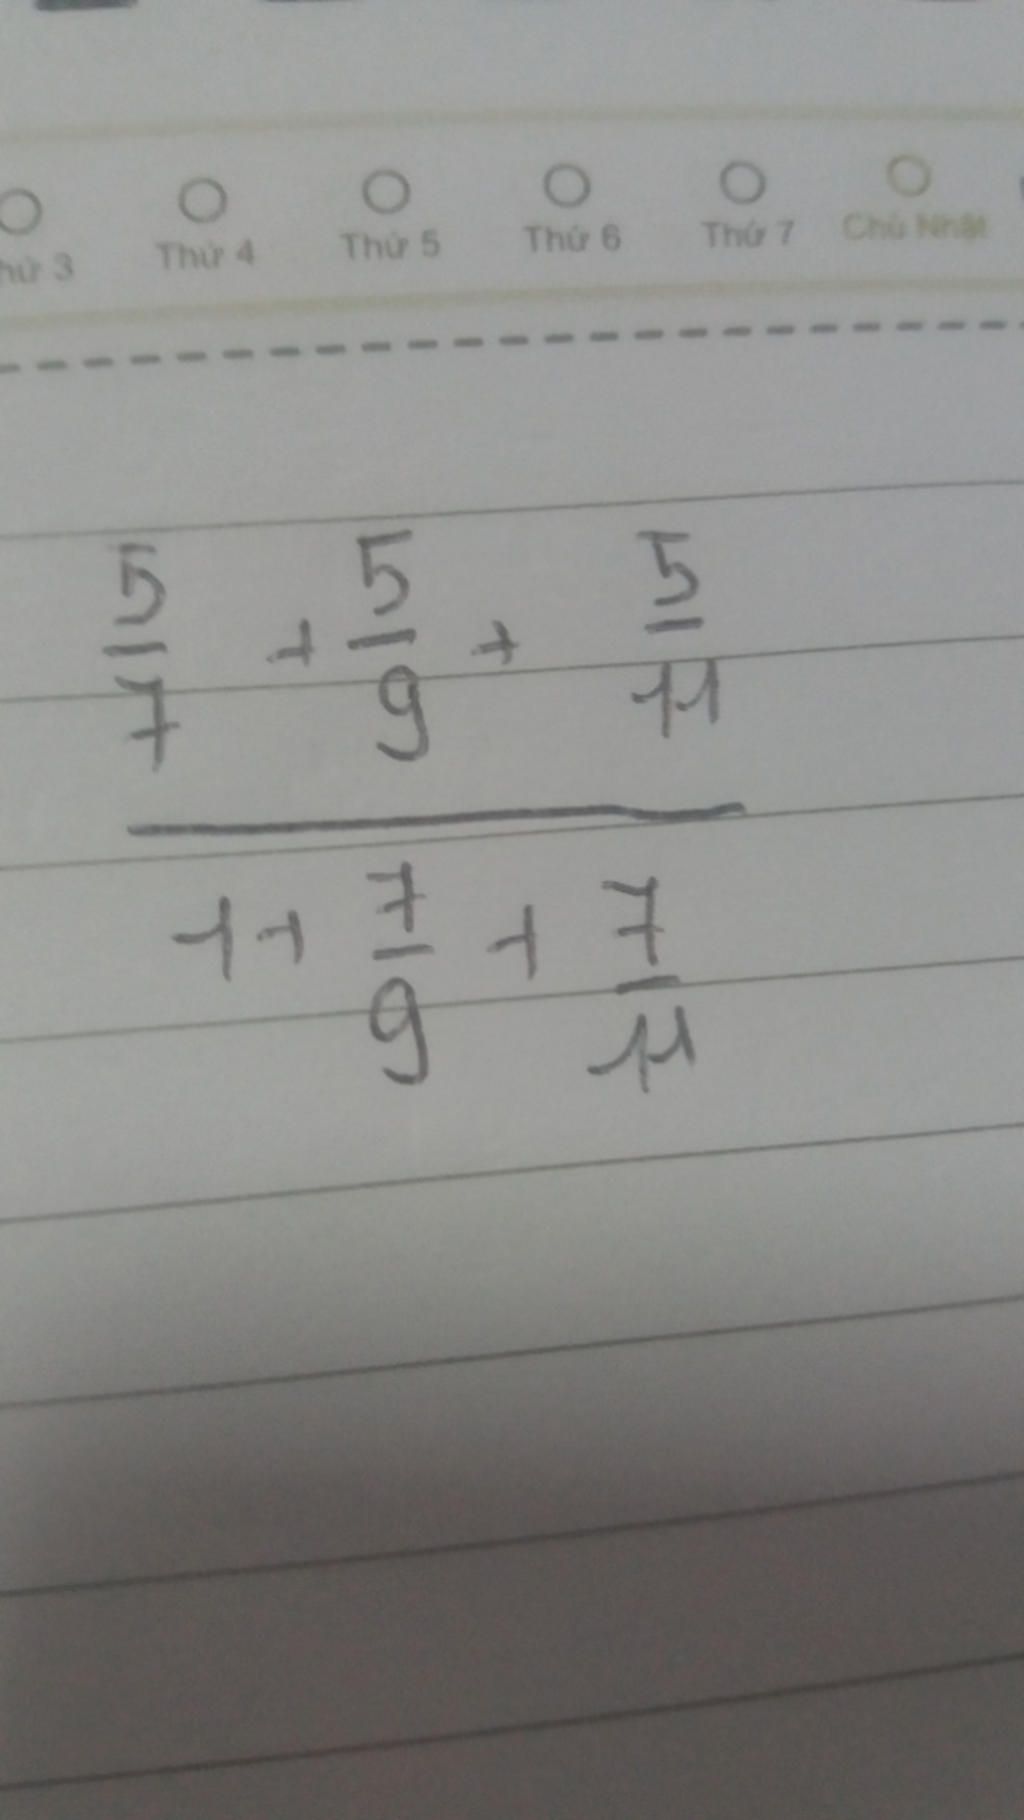 Thứ 4 Thứ 5 Thứ 6 Thứ 7 Chủ Nhật
5/7 + 5/9 + 5/11
1 + 7/9 + 7/11